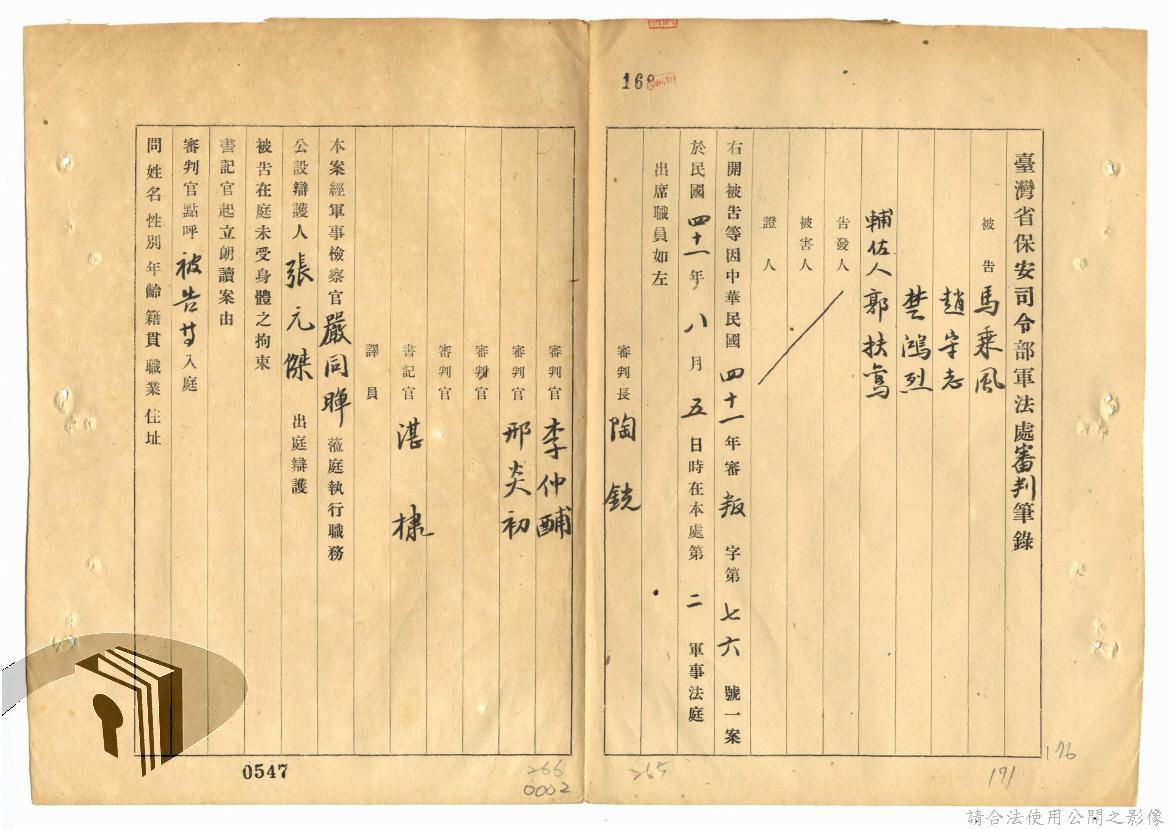 168
臺灣省保安司令部軍法處審判筆錄
被告 馬乘風
趙守志
楚鴻烈
輔佐人 郭扶鸞
告發人
被害人
證人
右開被告等因中華民國四十一年審叛字第七六號一案
於民國四十一年八月五日時在本處第二軍事法庭
出席職員如左
審判長 陶銑
審判官 李仲酺
審判官 邢炎初
審判官
審判官
書記官 湛棣
譯員
本案經軍事檢察官嚴同暉蒞庭執行職務
公設辯護人張元傑出庭辯護
被告在庭未受身體之拘束
書記官起立朗讀案由
審判官點呼被告等入庭
問姓名性別年齡籍貫職業住址
0547
266
0002
265
171
176
請合法使用公開之影像